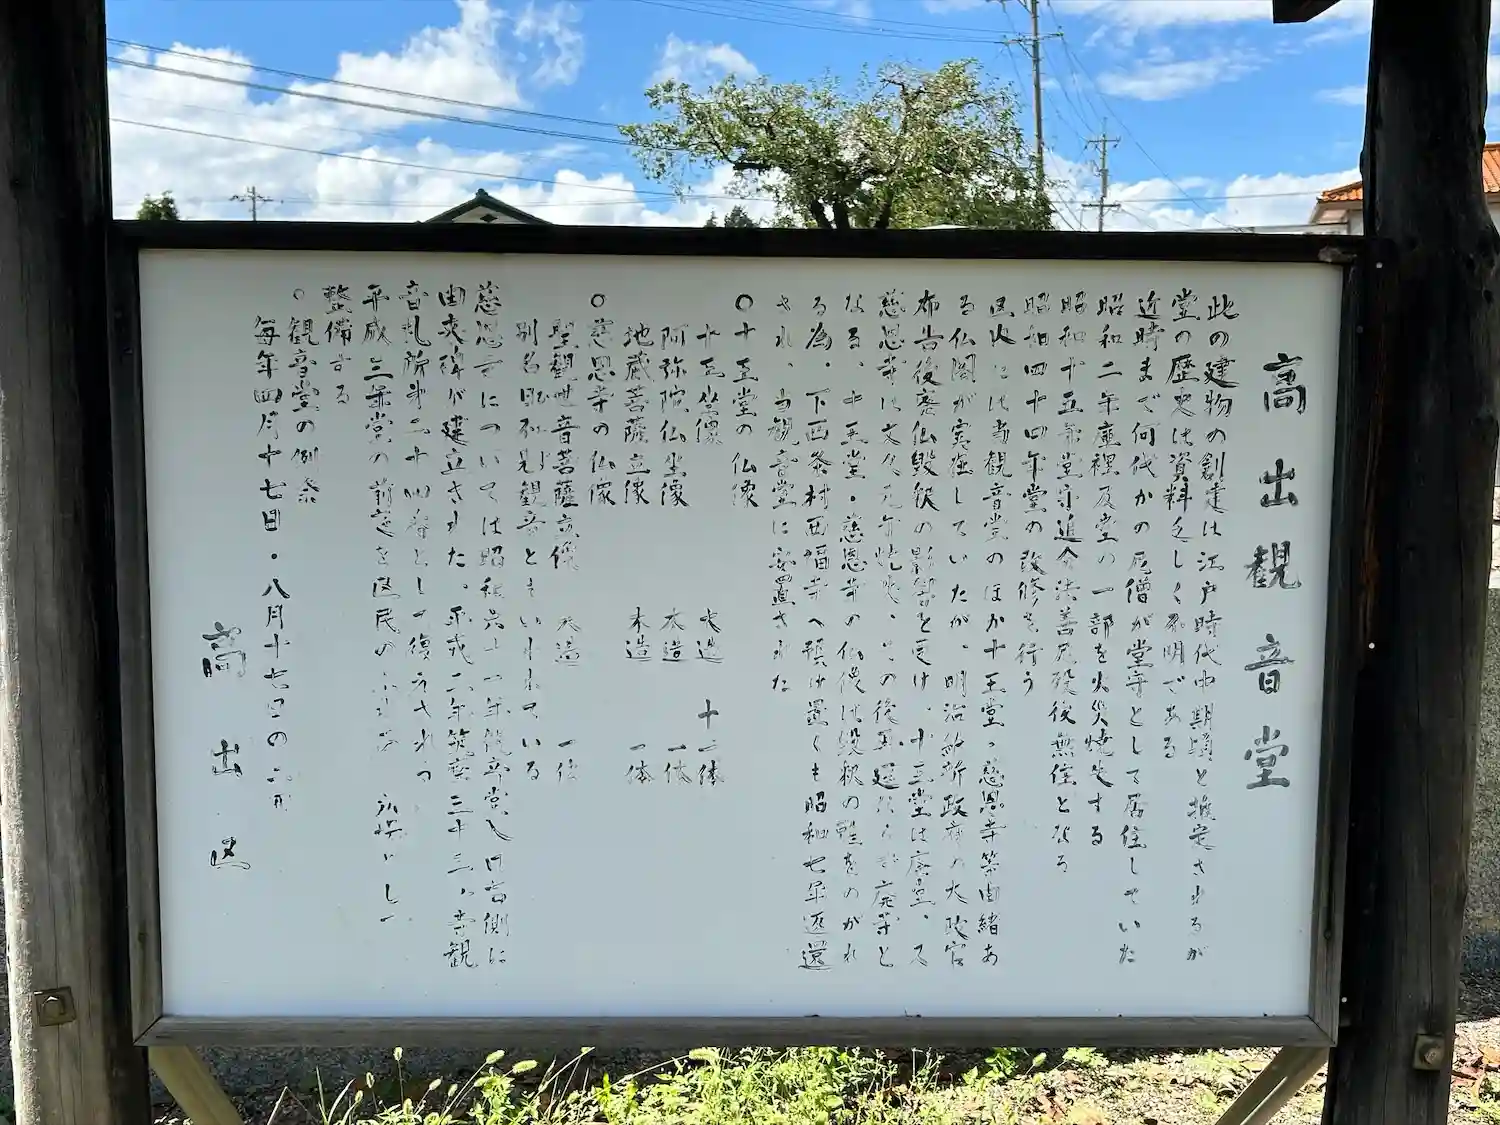 高出観音堂
此の建物の創建は江戸時代中期頃と推定されるが
堂の歴史は資料乏しく不明である
近時まで何代かの尼僧が堂守として居住していた
昭和二年庫裡及堂の一部を火災焼失する
昭和十五年堂守追分法善尼歿後無住となる
昭和四十四年堂の改修を行う
区内には当観音堂のほか十王堂、慈恩寺等由緒あ
る仏閣が実在していたが、明治維新政府の太政官
布告後廃仏毀釈の影響を更け、十王堂は廃堂、
慈恩寺は文久元年焼失、その後再建ならず廃寺と
なる、十王堂・慈恩寺の仏像は毀釈の難をのがれ
る為、下西条村西福寺へ預け置くも昭和七年返還
され、当観音堂に安置された
○十王堂の仏像
十王坐像 木造 十二体
阿弥陀仏坐像 木造 一体
地蔵菩薩立像 木造 一体
○慈恩寺の仏像
聖観世音菩薩立像 木造 一体
別名 観音ともいわれている
慈恩寺については昭和 年 堂入口右側に
由来碑が建立された、平成二年筑摩三十三ヵ所観
音札所第二十四番として復 され
平成三年堂の前庭を区民の として
整備する
○観音堂の例祭
毎年四月十七日・八月十七日の二
高出区